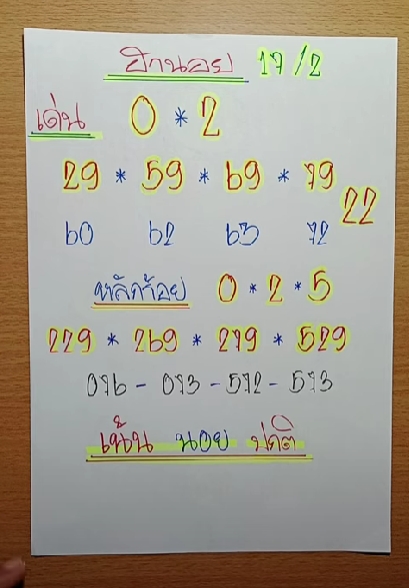 ฮานอย 17/2
เด่น 0 * 2
29 * 59 * 69 * 79
22
60 62 63 72
หลักร้อย 0 * 2 * 5
229 * 269 * 279 * 529
076 - 073 - 572 - 573
เน้น นอย ปกติ